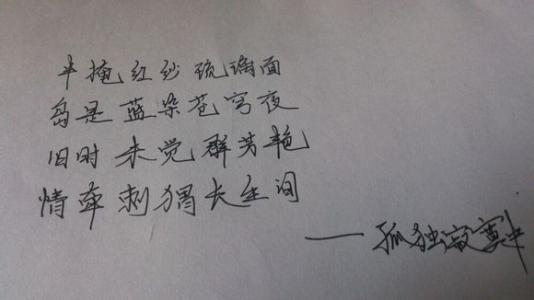 半掩红纱琉璃面
岛是蓝染苍穹夜
旧时未觉群芳艳
情牵刺猬长生间
——孤独寂寞中